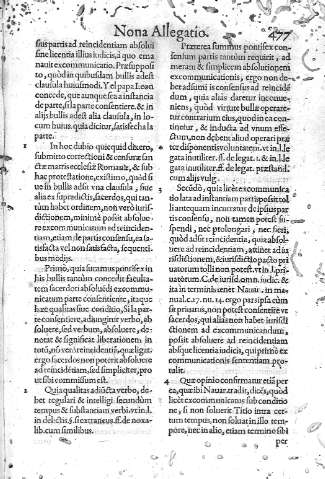 Nona Allegatio. 477
sius partis ad reincidentiam absolui
sine licentia illius iudicis, à quo ema
nauit excommunicatio. Præsuppo
sito, quòd in quibusdam bullis adest
clausula huiusmodi. Y el papa Leon
concede, que aunque sea a instancia
de parte, si la parte consentiere. & in
alijs bullis adest alia clausula, in lo-
cum huius. quæ dicitur, satisfecha la
parte.
1 In hoc dubio quicquid dixero,
submitto correctioni & censuræ san
ctæ matris ecclesiæ Romanæ, & sub
hac protestatione, existimo, quòd si
ue in bullis adsit vna clausula, siue
alia ex supradictis, sacerdos, qui tan-
tùm habet ordinem, non verò iuris-
dictionem, minimè possit absolue-
re excommunicatum ad reinciden-
tiam, etiam de partis consensu, ea sa-
tisfacta vel non satisfacta, sequenti-
bus modis.
Primò, quia summus pontifex in
his bullis tantùm concedit faculta-
tem sacerdoti absoluēdi excommu-
nicatum parte consentiente, ita quòd
hæc qualitas siue conditio, Si la par-
te consentiere, adiungitur verbo, ab-
soluere, sed verbum, absoluere, de-
notat & significat liberationem in
totū, nō verò reincidētiā, qua ligatꝰ
ergo sacerdos non poterit absoluere
ad reincidentiā, sed simpliciter, pro
ut sibi commissum est.
2 Quia qualitas adiūcta verbo, de-
bet regulari & intelligi secundùm
tempus & substantiam verbi. vt in l.
in delictis. §. si extraneus. ff. de noxa-
lib. cum similibus.
Præterea summus pontifex con-
sensum partis tantùm requirit, ad
meram & simplicem absolutionem
excommunicationis, ergo non de-
bet adsumi is consensus ad reinciden-
dum, quia aliàs daretur inconue-
niens, quòd virtute bullæ operare-
tur contrarium eius, quod in ea con
tinetur, & inducta ad vnum effe-
ctum, non debent aliud operari præ
ter disponentis voluntatem. vt in l. le
gata inutiliter. ff. de legat. 1. & in l. le
gata inutiliter. ff. de legat. præstand.
cum alijs vulg.
3 Secūdò, quia licèt excommunica
tio lata ad instantiam partis possit tol
li antequam incurratur de ipsius par
tis consensu, non tamen potest su-
spendi, nec prolongari, nec fieri,
quòd adsit reincidentia, quia absol-
uere ad reincidentiam, attinet ad iu
risdictionem, & iurisdictio pacto pri
uatorum tolli non potest. vt in l. pri-
uatorum. C. de iurisd. omn. iudic. &
ita in terminis tenet Nauar. in ma-
nual. c. 27. nu. 14. ergo pars ipsa cùm
sit priuatus, non potest consentire vt
sacerdos, qui aliàs non habet iurisdi-
ctionem ad excommunicandum,
possit absoluere ad reincidentiam
absque licentia iudicis, qui primò ex
communicationis sententiam pro-
tulit.
4 Quæ opinio confirmatur etiā per
ea, quæ tibi Nauar. addit, dicēs, quòd
licèt excommunicatus sub conditio
ne, si non soluerit Titio intra cer-
tum tempus, non soluat in illo tem-
pore, nec in alio, etiam termino sibi
per